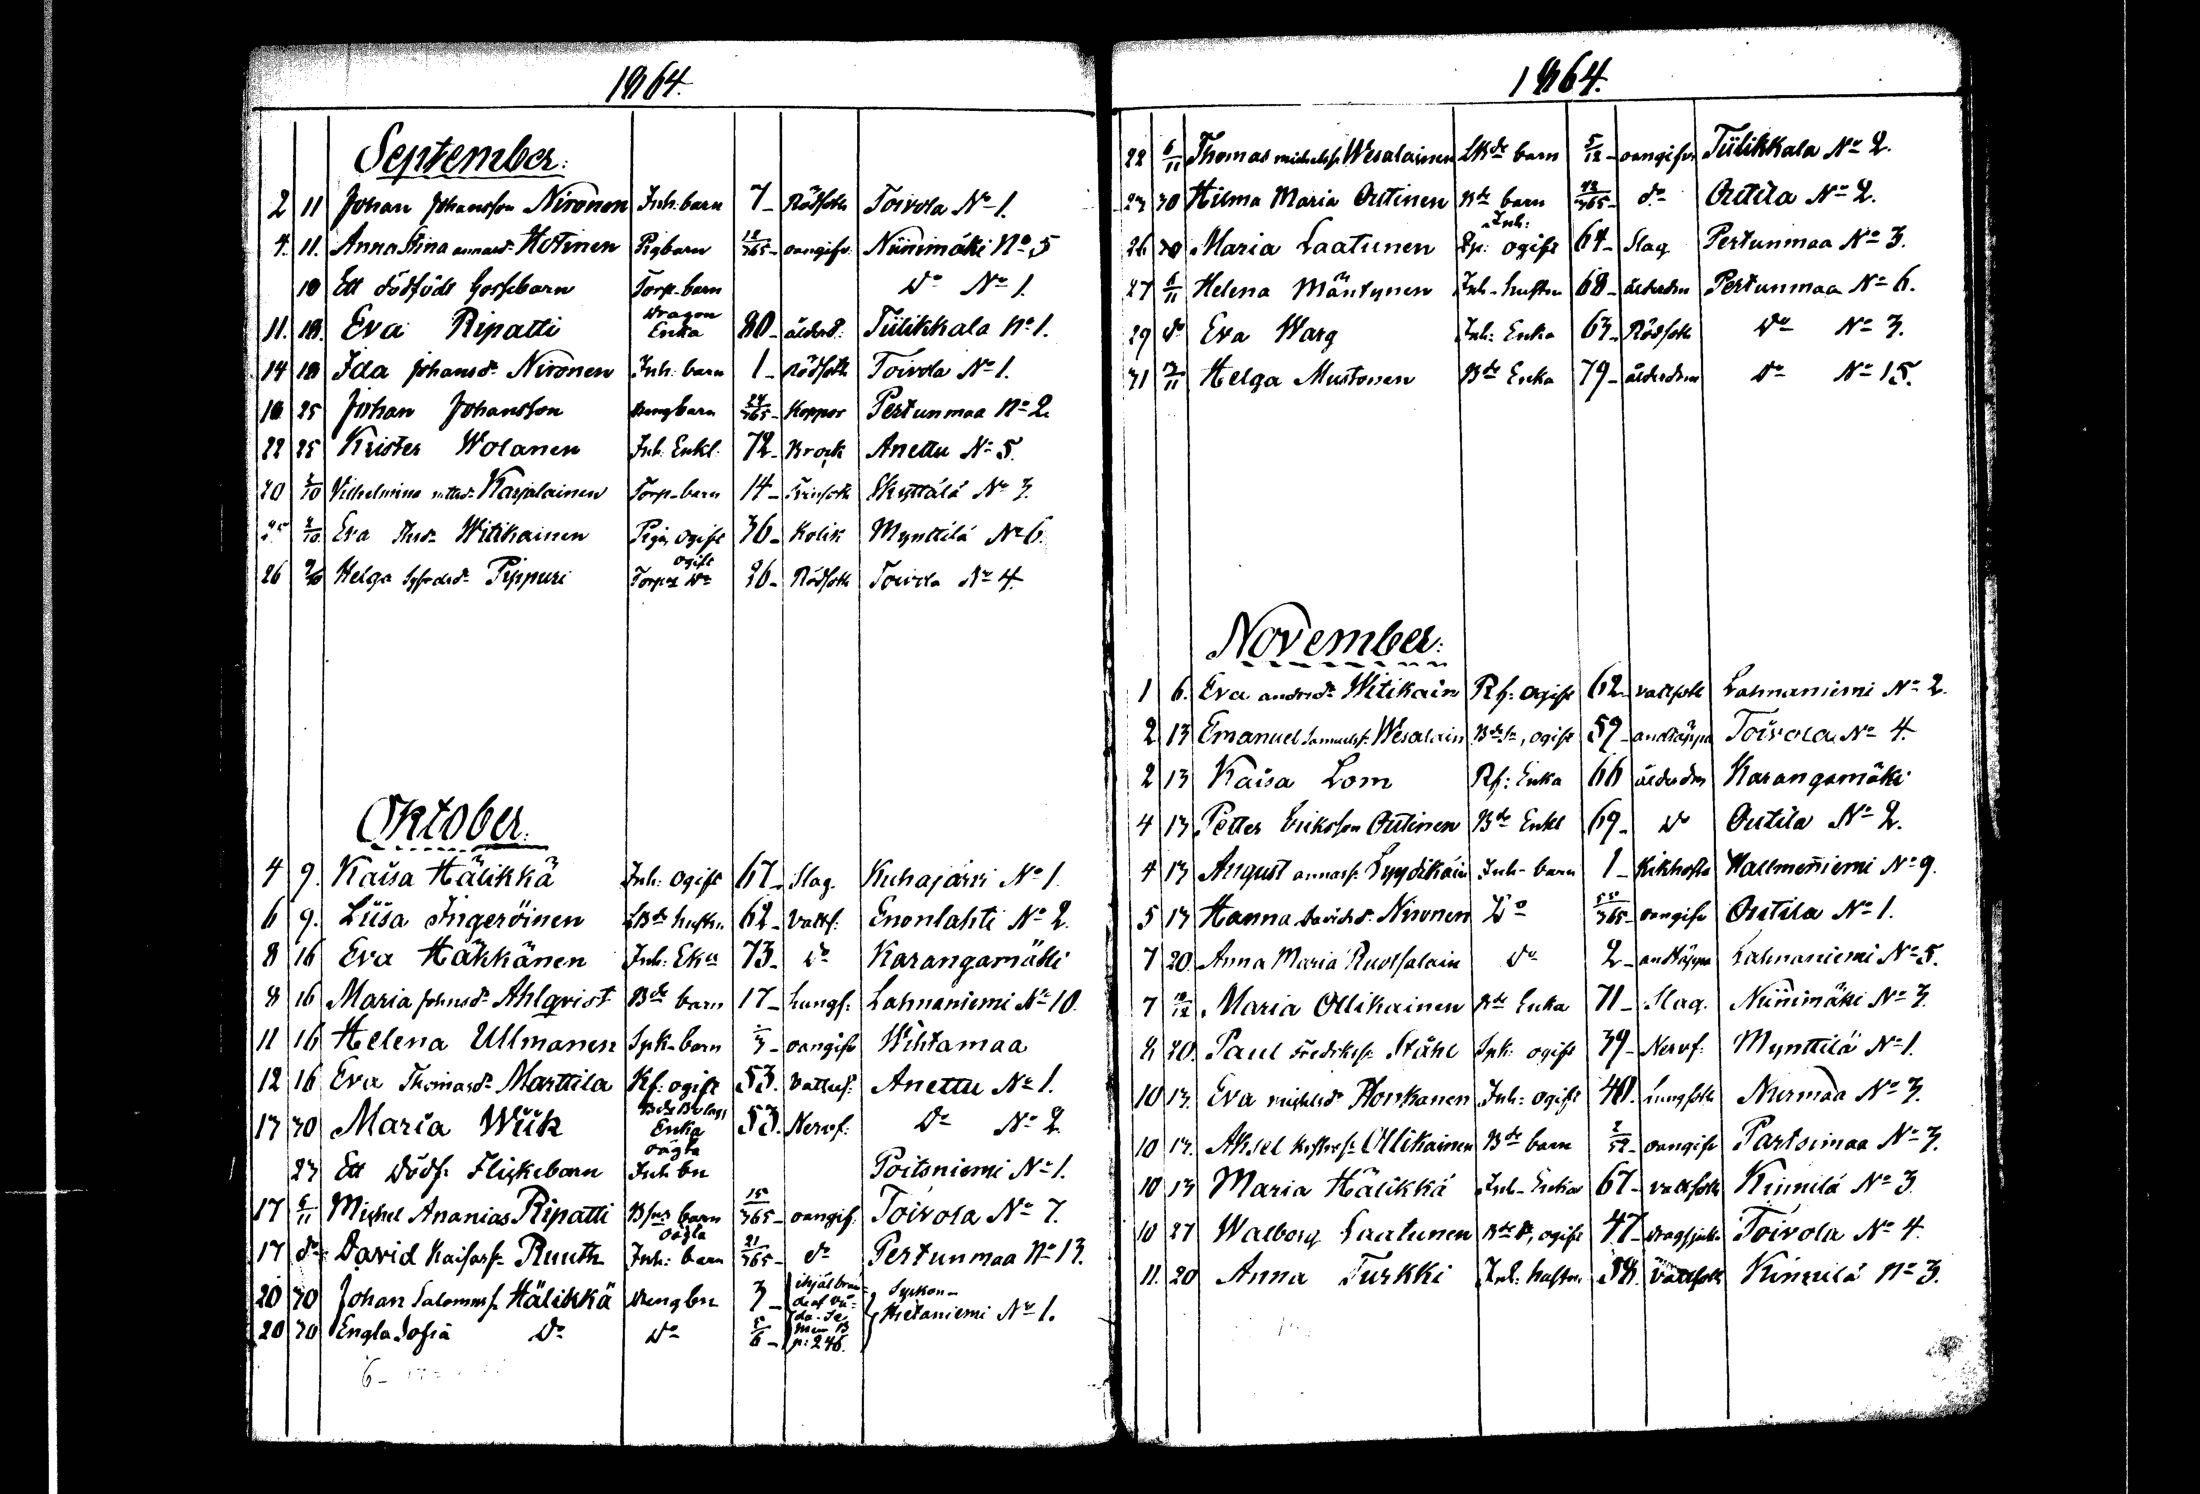 1864.
September:
2 11 Johan Johansson Nironen Inh. barn 7- Rödsoth Toivola No 1.
4. 11. Anna Stina annasdr Hotinen Pigbarn 12/365- oangifv. Niinimäki No 5
18 Ett dödfödt Gossebarn Torp-barn Do No 1.
11. 18. Eva Ripatti Dragon Enka 80- ålderd: Tiilikkala No 1.
14 18 Ida Johansdr Nironen Inh: barn 1- Rödsoth Toivola No 1.
18 25 Johan Johansson Drengbarn 24/365- Koppor Pertunmaa No 2
22 25 Krister Wolanen Inh. Enkl. 72- Bråck Anettu No 5.
20 2/10 Vilhelmina Karjalainen Torp-barn 14- Skyttälä No 3.
25 2/10 Eva Witikainen Piga, ogift 36- Kolik Mynttilä No 6.
26 Helga Pippuri ogift Torp Do 26- Rödsoth Toivola No 4.
Oktober.
4 9. Kaisa Hälikkä Inh: ogift 67- Slag. Kuhajärvi No 1.
6 9. Liisa Ingeröinen LBde hustru 62- Vatts: Enonlahti No 2.
8 16 Eva Häkkänen Inh: Eka 73- Do Karangamäki
8 16 Maria Johnsdr Ahlqvist Bde barn 17- Lungs: Lahnaniemi No 10.
11 16 Helena Ullmanen Spk-barn oangifv Wihtamaa
12 16 Eva Thomasdr Marttila Rf: ogift 53. Vattus: Anettu No 1.
13 30 Maria Wiik Bde Bolags Enka 53. Nervf: Do No 2.
23 Ett Dödf: Flickebarn oägta Inh bn Poitoniemi No 1.
17 6/11 Michel Ananias Ripatti barn 15/365- oangif. Toivola No 7.
17 do David Kaisass: Ruuth oägta Inh: barn 21/365- do Pertunmaa No 13.
20 30 Johan Salomons: Hälikkä Drengbn 3- ihjälbrän= de af vå= da. Se Min B p: 246. Syrkon- Hietaniemi No 1.
20 30 Engla Sofia Do Do 5/6-
1864.
22 6/11 Thomas michelss: Wesalainen LBde barn 5/12- oangifvn Tiilikkala No 2.
23 30 Hilma Maria Outinen Bde barn do Outila No 2.
26 30 Maria Laatunen Inh: ogift 64- Slag Pertunmaa No 3.
27 6/11 Helena Mäntynen Inh-hustru 68- ålderdm Pertunmaa No 6.
29 do Eva Warg Inh: Enka 63- Rödsoth Do No 3.
31 Helga Mustonen Bde Enka 79- ålderdm Do No 15.
November:
1 6. Eva andersdr Witikain Rf: ogift 62- vattsoth Lahnaniemi No 2.
2 13 Emanuel Samuelss: Wesalain ogift 59- andtäppa Toivola No 4.
2 13 Kaisa Lom Rf: Enka 66 ålderdm Karangamäki
4 13 Petter Eriksson Outinen Bde Enkl 69- Do Outila No 2.
4 13 August annass: Lyydikäin Inh-barn 1- Kikhosta Hallmeniemi No 9.
5 13 Hanna Davidsdr Nironen Do oangifv Outila No 1.
7 20. Anna Maria Ruotsalain Do 2- andtäppa Lahnaniemi No 5.
7 Maria Ollikainen Bde Enka 71- Slag. Niinimäki No 3.
8 20. Paul Fredrikss: Ståhl Spk: ogift 39- Nervf: Mynttilä No 1.
10 13. Eva michelsdr Honkanen Inh: ogift 40. Lungsoth Nurmaa No 3.
10 13. Aksel Ollikainen Bde barn 2/52- oangifv Partsimaa No 3.
10 13 Maria Hälikkä Inh-Enka 67- vattsoth Kinnilä No 3.
10 27 Walborg Laatunen ogift 47- Dragsjuka Toivola No 4.
11. 20 Anna Turkki Inh: hustru Vattsoth Kinnilä No 3.